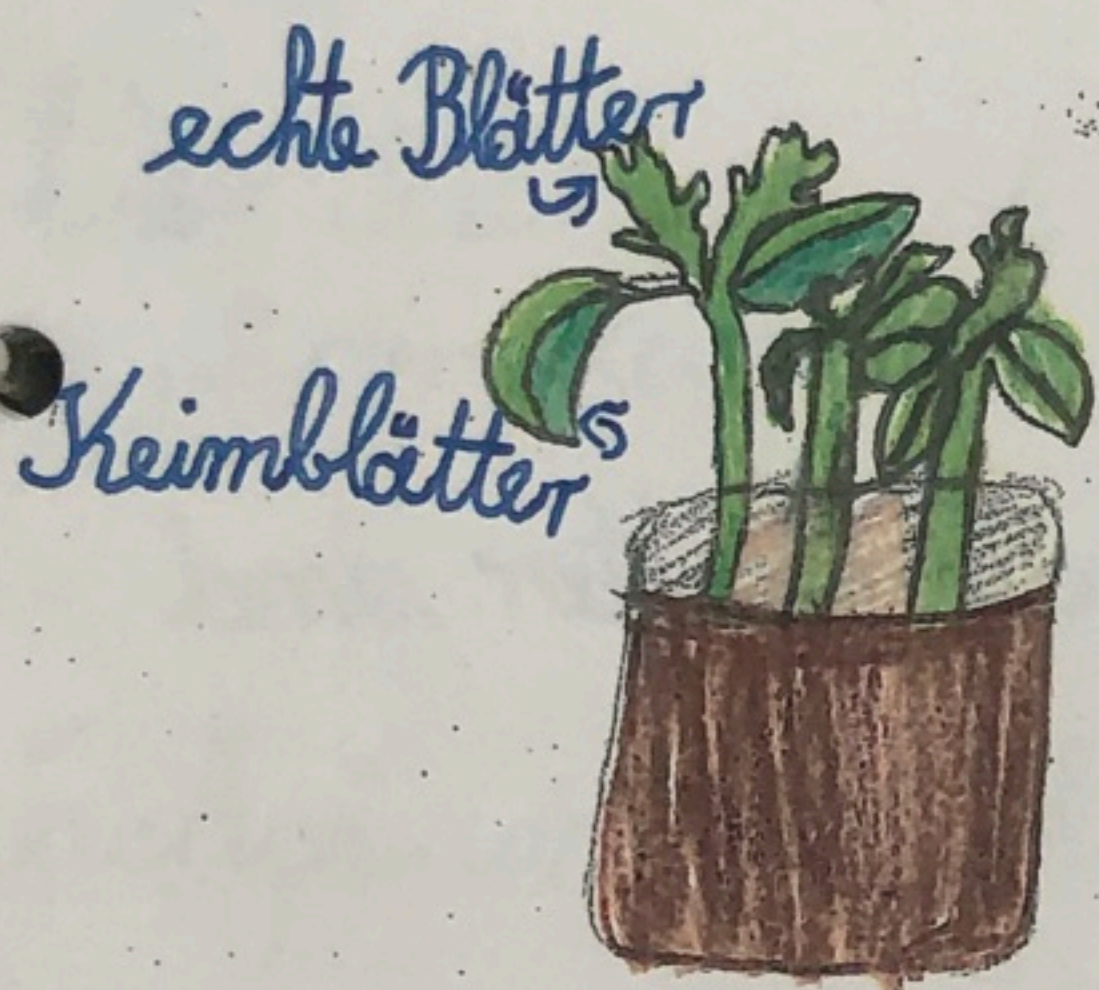 echte Blätter
Keimblätter